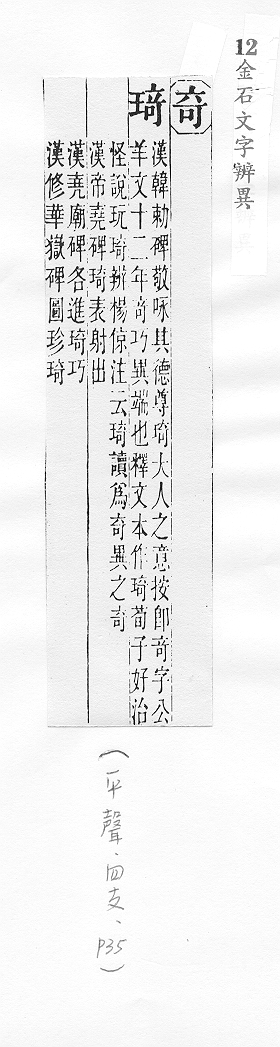 12金石文字辨異
奇
琦
漢韓勑碑敬咏其德尊琦大人之意按卽奇字公
羊文十二年奇巧異端也釋文本作琦荀子好治
怪說玩琦辭楊倞注云琦讀爲奇異之奇
漢帝堯碑琦表射出
漢堯廟碑各進琦巧
漢修華嶽碑圖珍琦
(平聲、四支、P35)